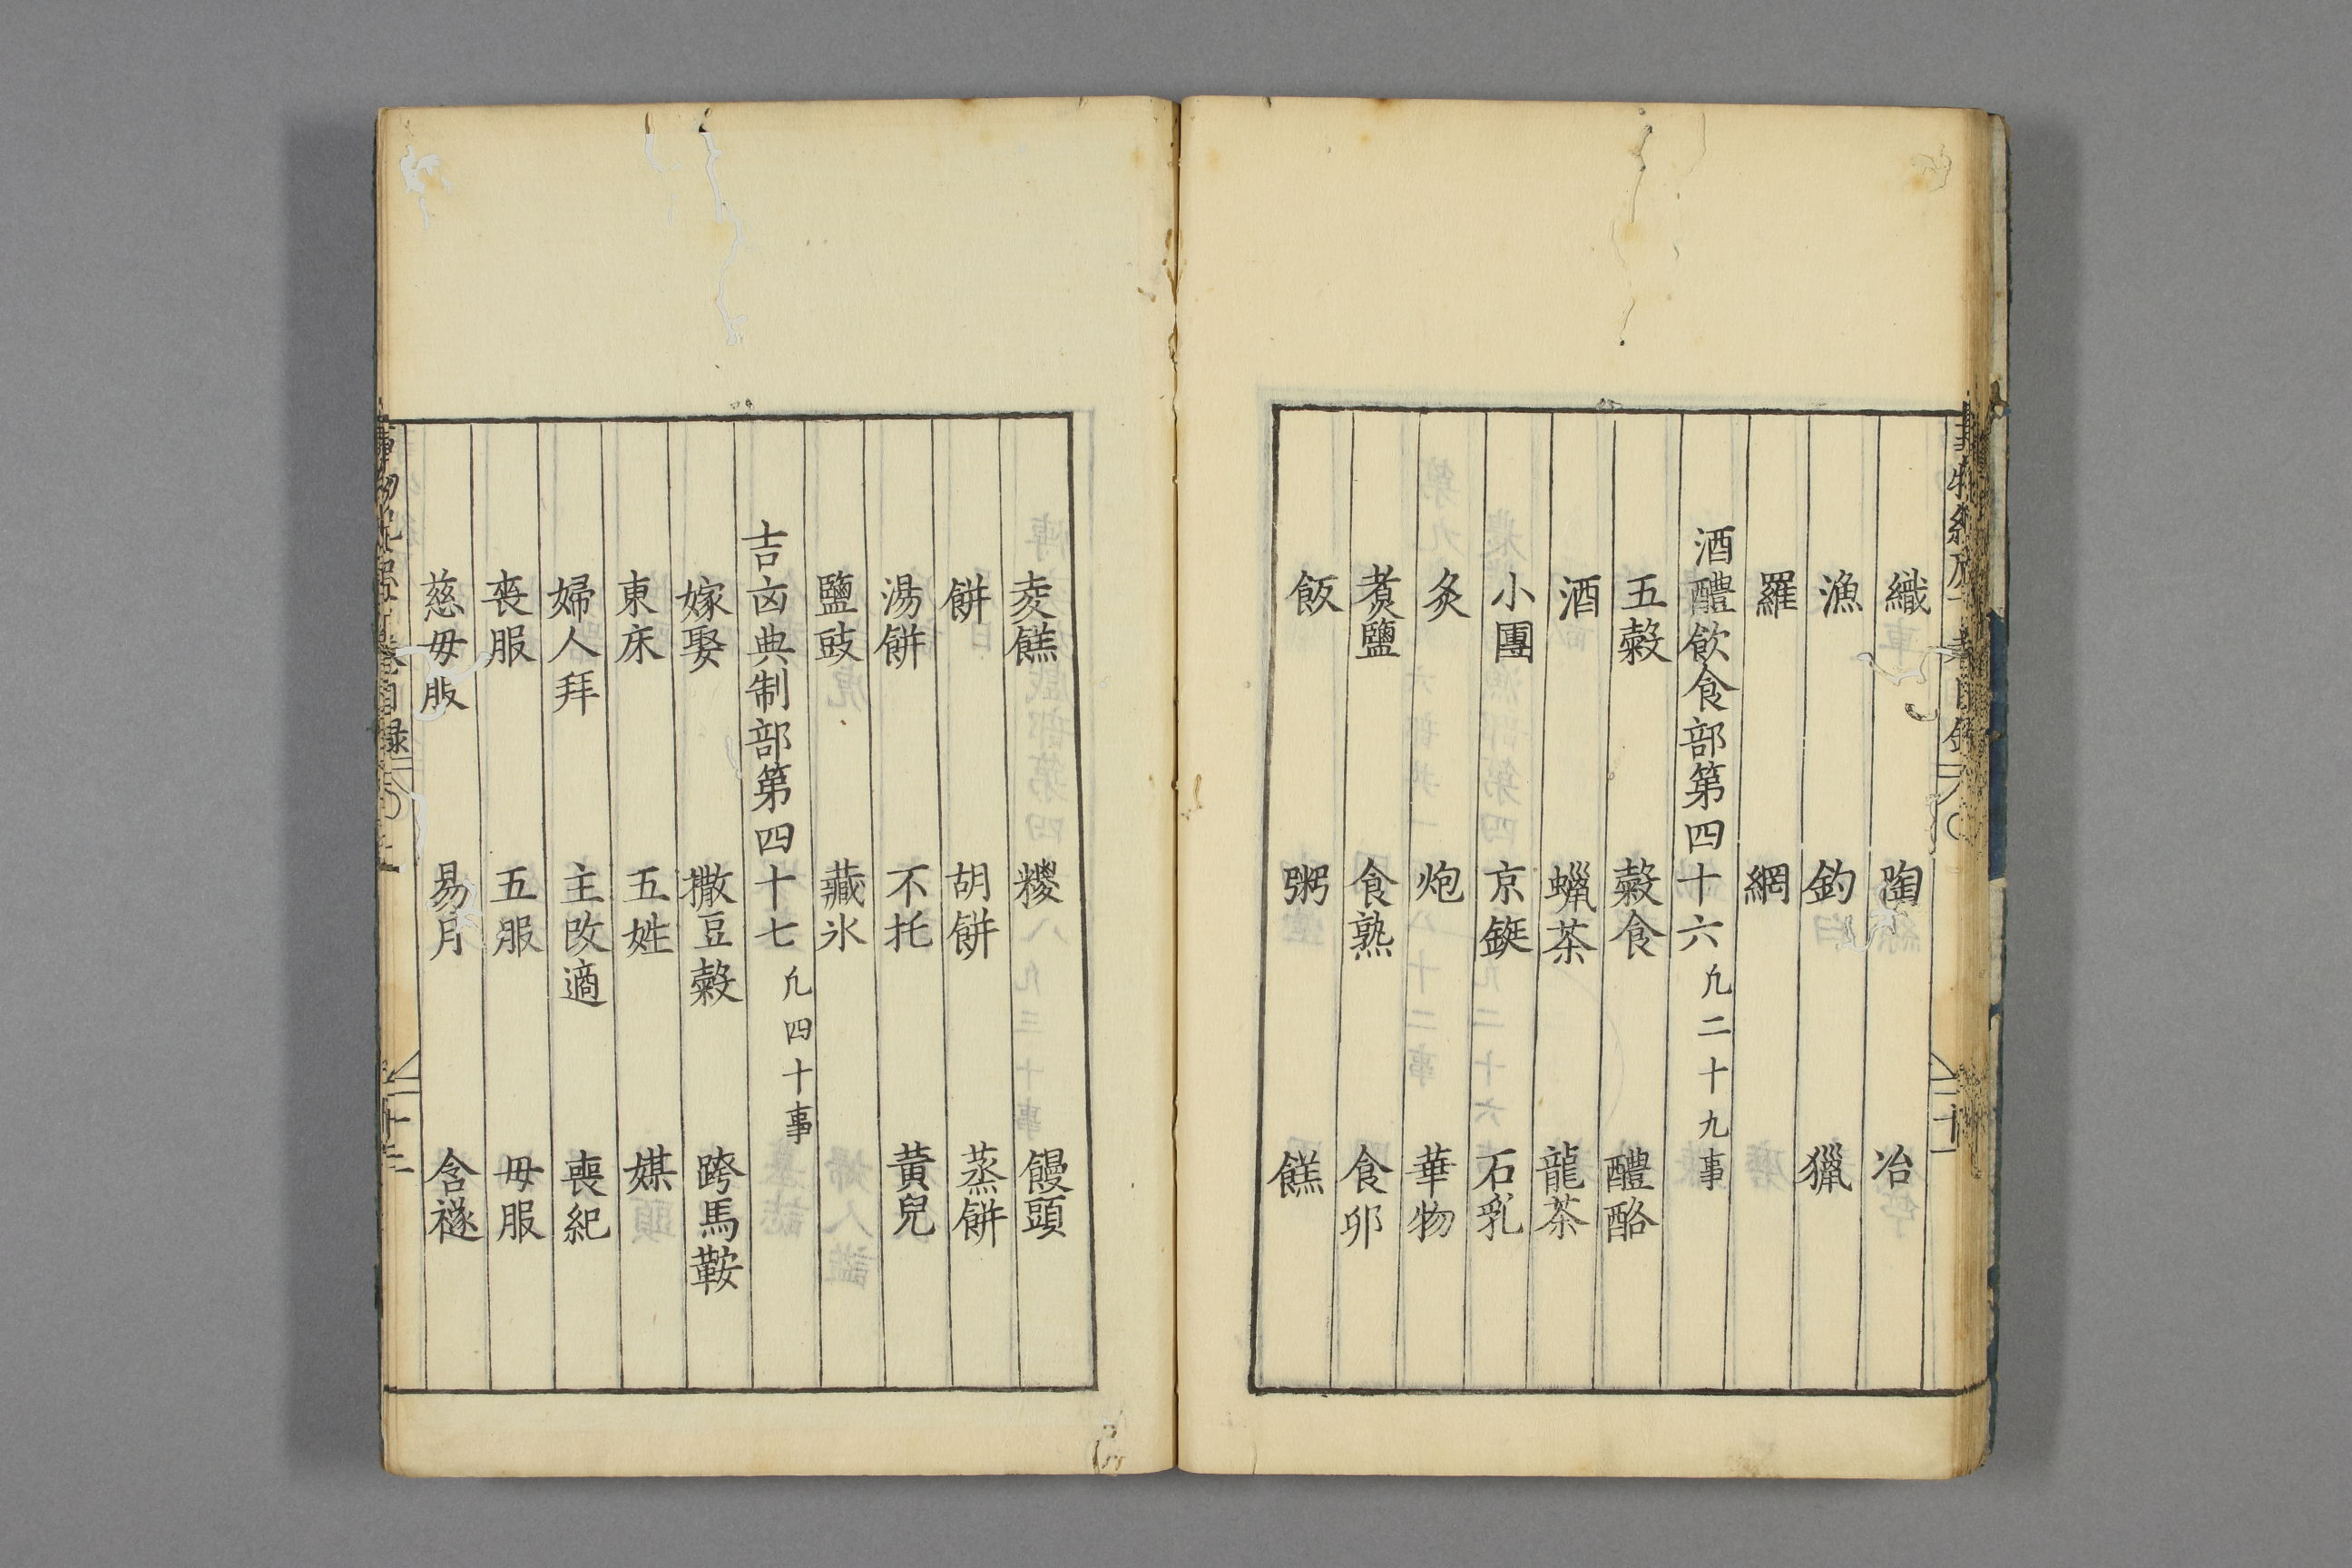 織 陶 冶
漁 釣 獵
羅 網
酒醴飲食部第四十六 凡二十九事
五穀 穀食 醴酪
酒 蠟茶 龍茶
小團 京鋌 石乳
炙 炮 華物
煑鹽 食熟 食卵
飯 粥 餻
麥餻 糉 饅頭
餅 胡餅 蒸餅
湯餅 不托 黃兒
鹽豉 藏氷
吉凶典制部第四十七 凡四十事
嫁娶 撒豆穀 跨馬鞍
東床 五姓 媒
婦人拜 主改適 喪紀
喪服 五服 母服
慈母服 易月 含襚